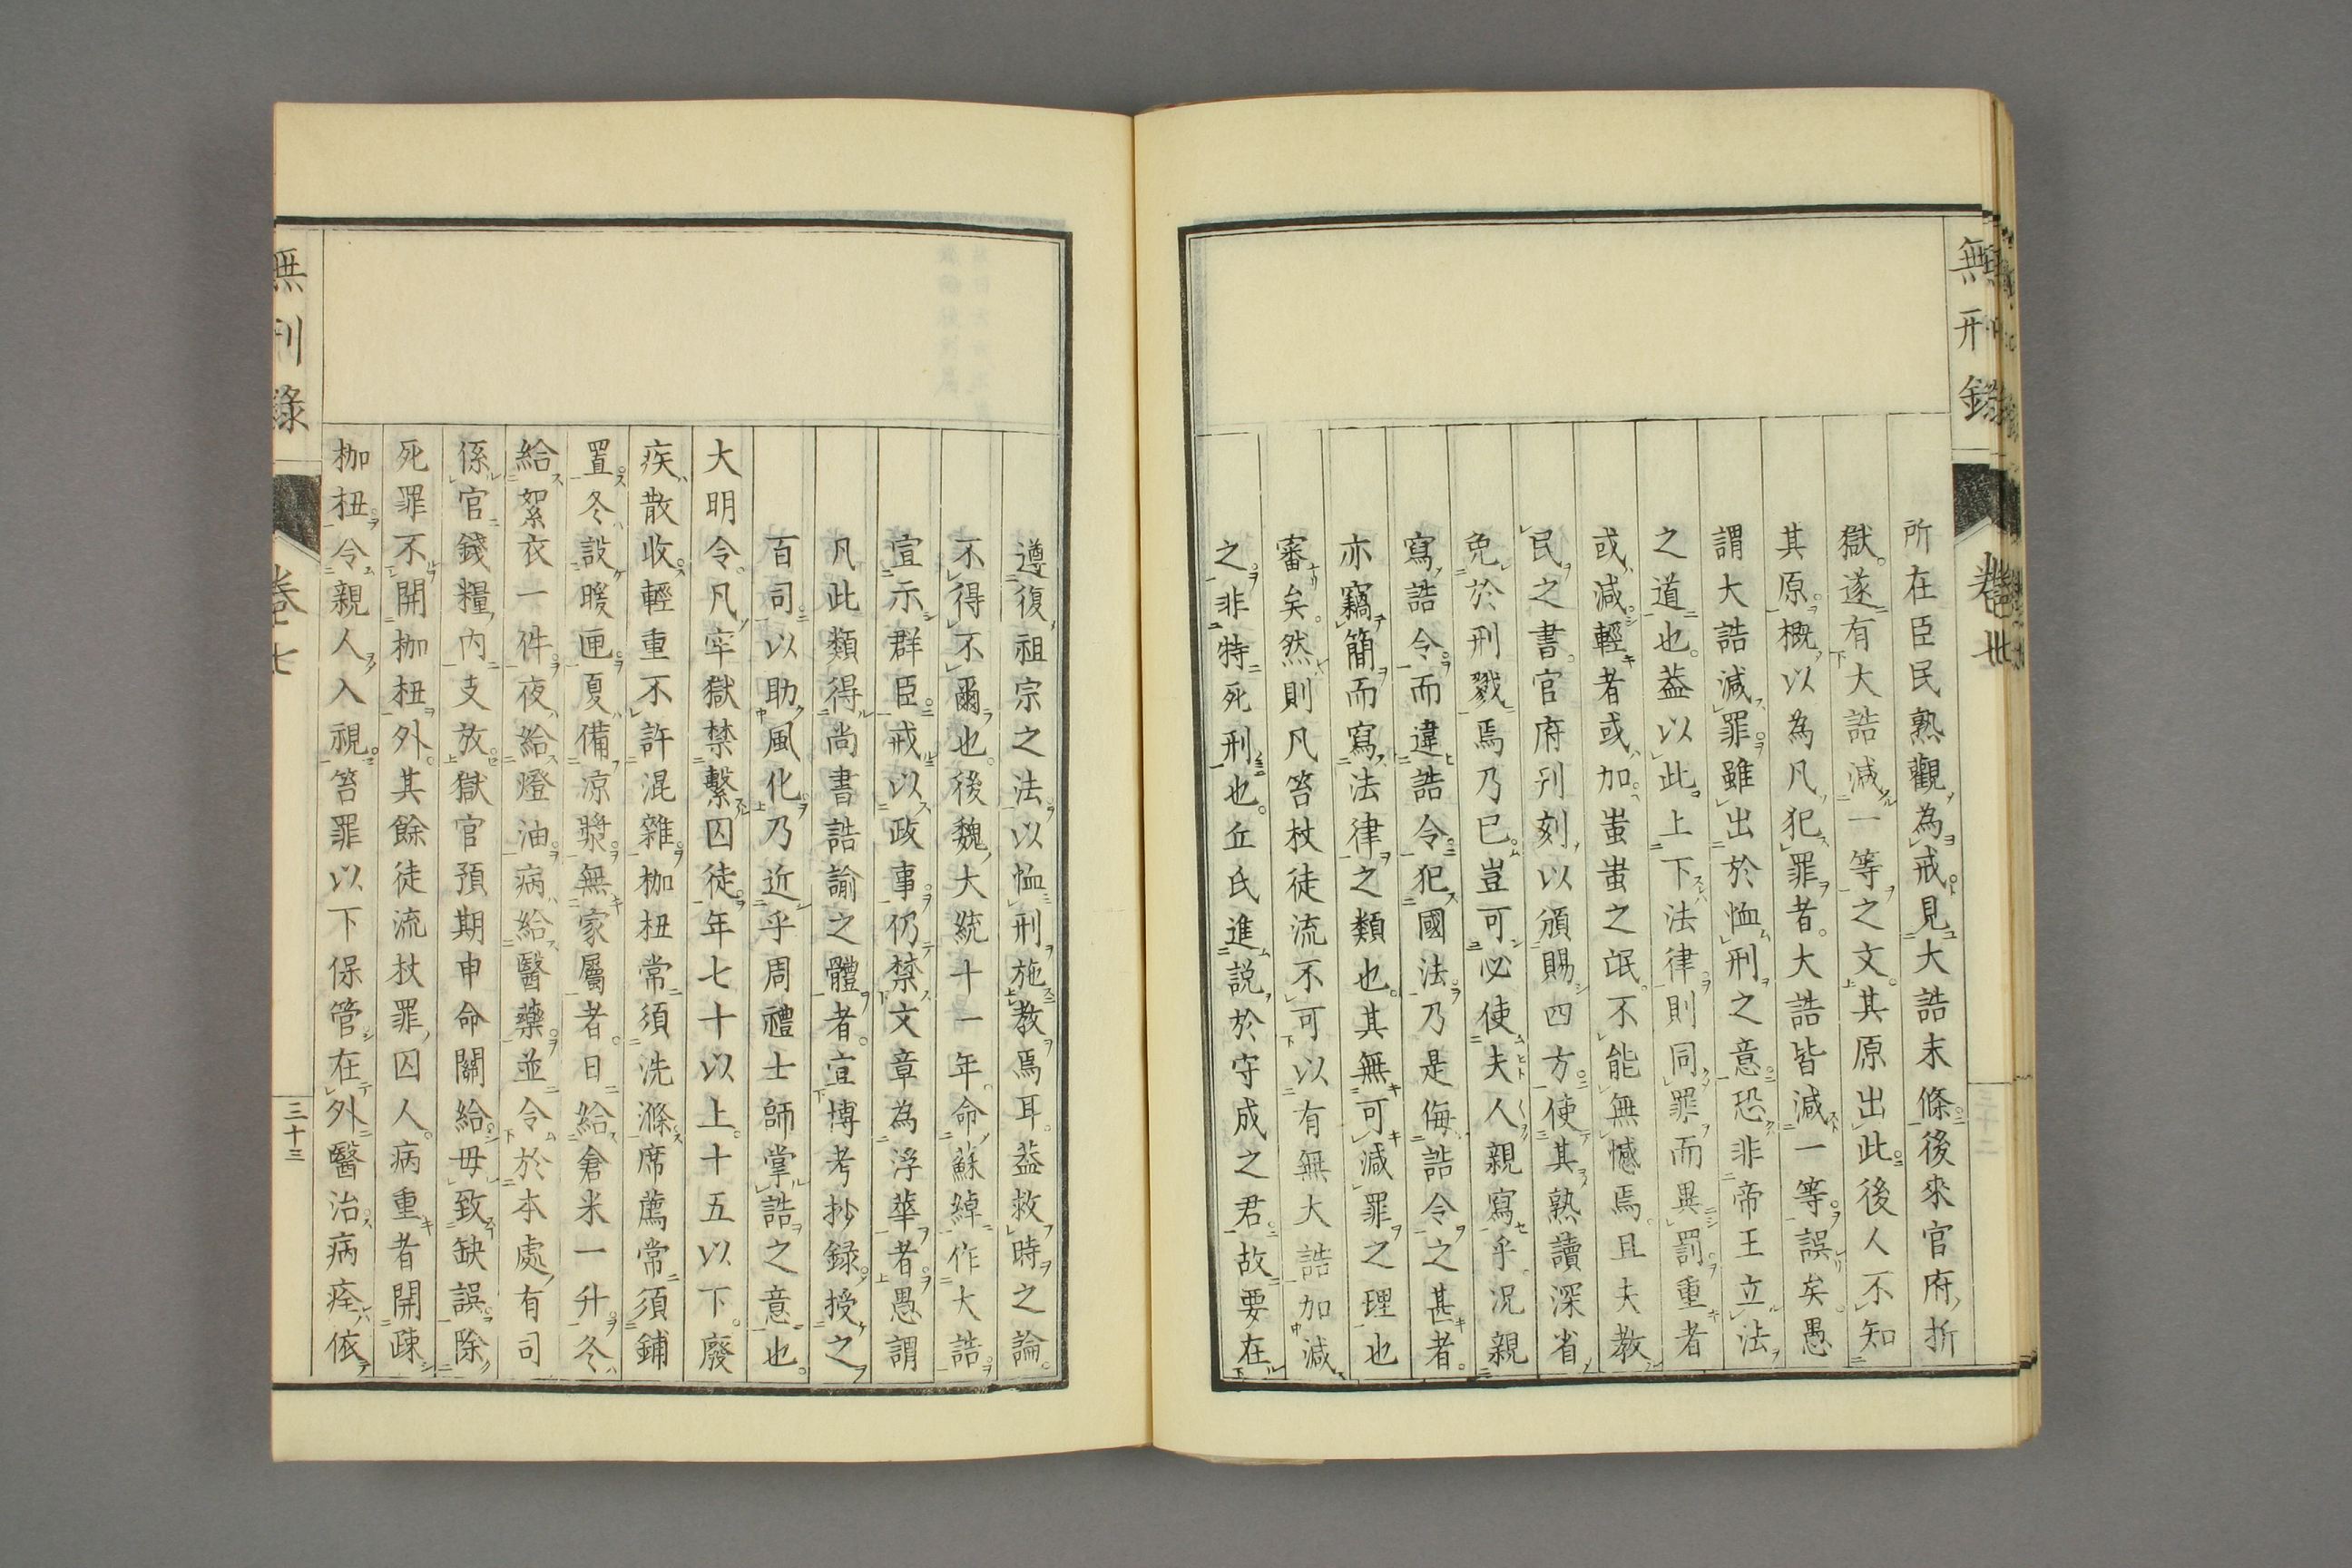 無刑錄
卷七
所在臣民熟觀爲戒見大誥末條後來官府折
獄遂有大誥減一等之文其原出此後人不知
其原概以為凡犯罪者大誥皆減一等誤矣愚
謂大誥減罪雖出於恤刑之意恐非帝王立法
之道也蓋以此上下法律則同罪而異罰重者
或減輕者或加蚩蚩之氓不能無憾焉且夫教
民之書官府刊刻以頒賜四方使其熟讀深省
免於刑戮焉乃已豈可必使夫人親寫乎况親
寫誥令而違誥令犯國法乃是侮誥令之甚者
亦竊簡而寫法律之類也其無可減罪之理也
審矣然則凡笞杖徒流不可以有無大誥加減
之非特死刑也丘氏進説於守成之君故要在
遵復祖宗之法以恤刑施教焉耳蓋救時之論
不得不爾也後魏大統十一年命蘇綽作大誥
宣示群臣戒以政事仍禁文章為浮華者愚謂
凡此類得尚書誥諭之體者宜博考抄録授之
百司以助風化乃近乎周禮士師掌誥之意也
大明令凡牢獄禁繫囚徒年七十以上十五以下廢
疾散收輕重不許混雜枷杻常須洗滌席薦常須鋪
置冬設暖匣夏備凉漿無家屬者日給倉米一升冬
給絮衣一件夜給燈油病給醫藥並令於本處有司
係官錢糧内支放獄官預期申命關給毋致缺誤除
死罪不開枷杻外其餘徒流杖罪囚人病重者開疎
枷杻令親人入視笞罪以下保管在外醫治病痊依
無刑錄
卷七
三十三